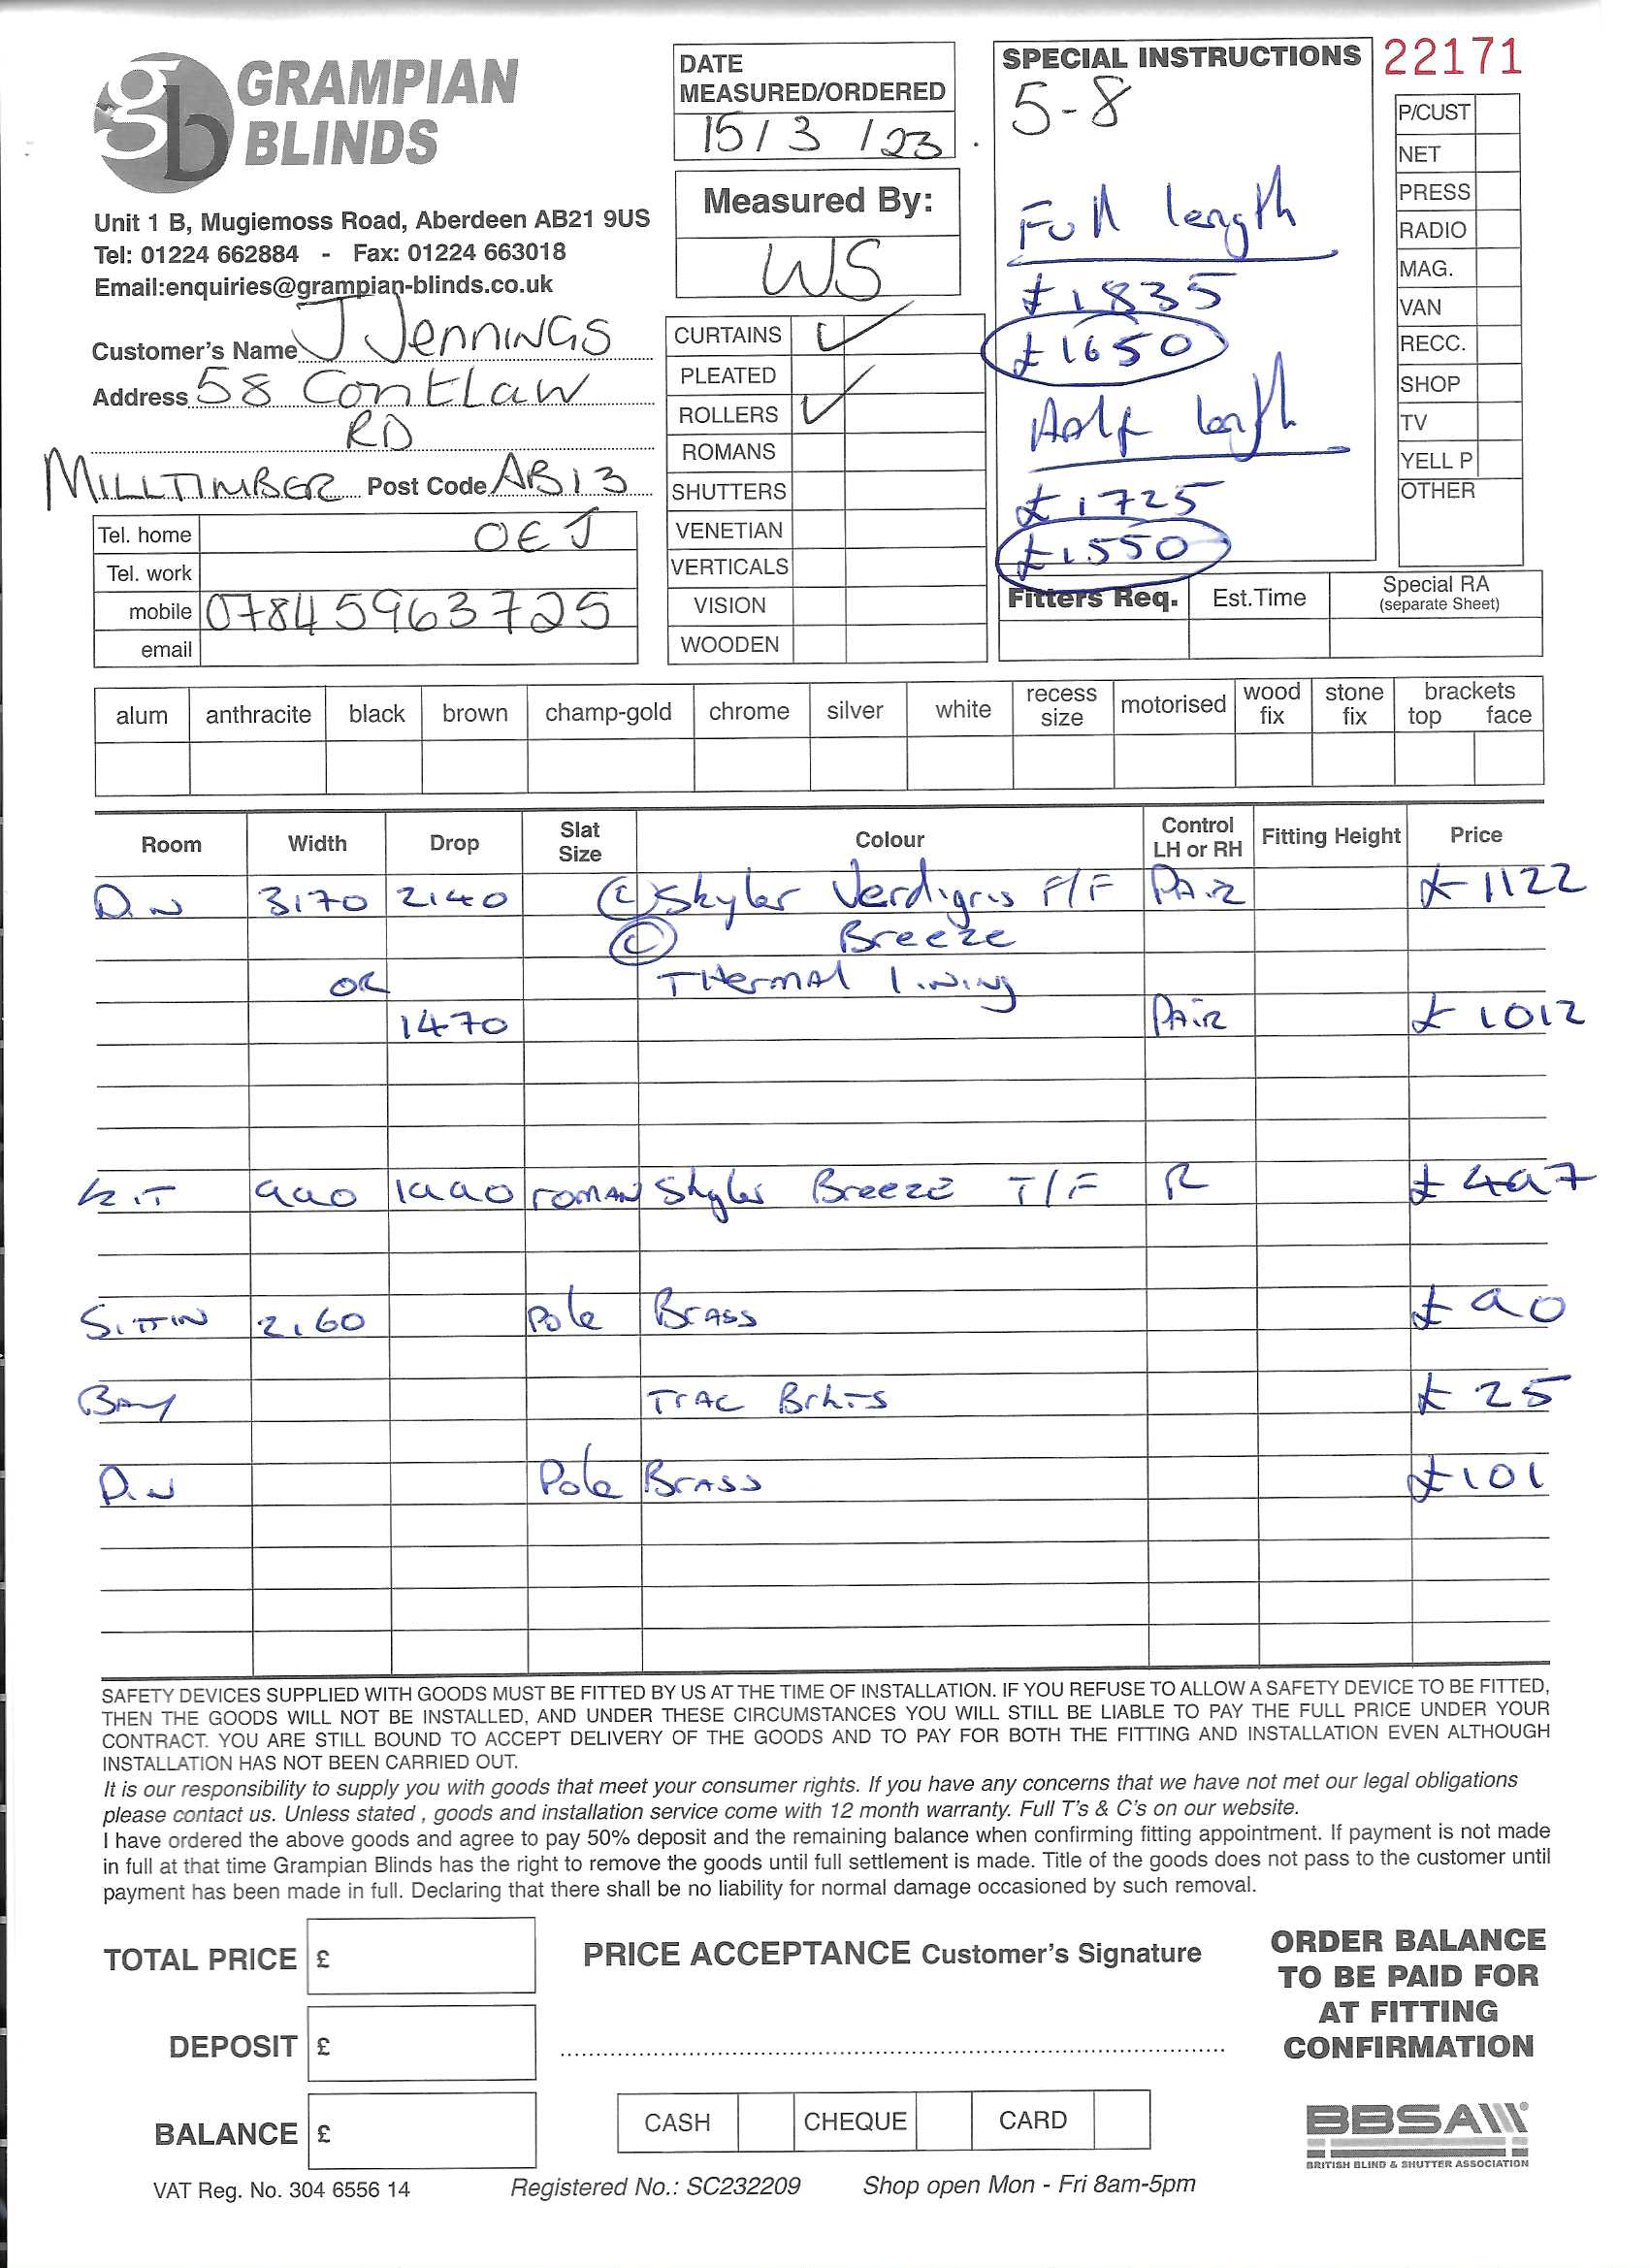 GRAMPIAN BLINDS
Unit 1 B, Mugiemoss Road, Aberdeen AB21 9US
Tel: 01224 662884 - Fax: 01224 663018
Email:enquiries@grampian-blinds.co.uk
Customer's Name J Jennings
Address 58 Contlaw
RD
MILLTIMBER Post Code AB13
Tel. home 0EJ
Tel. work
mobile 07845963725
email
DATE
MEASURED/ORDERED
15/3/23
Measured By:
WS
CURTAINS ✓
PLEATED
ROLLERS ✓
ROMANS
SHUTTERS
VENETIAN
VERTICALS
VISION
WOODEN
SPECIAL INSTRUCTIONS
5-8
Full length
£1835
£1650
Half length
£1725
£1550
22171
P/CUST
NET
PRESS
RADIO
MAG.
VAN
RECC.
SHOP
TV
YELL P
OTHER
Fitters Req. Est.Time Special RA
(separate Sheet)
alum anthracite black brown champ-gold chrome silver white recess size motorised wood fix stone fix brackets top face
Room Width Drop Slat Size Colour Control LH or RH Fitting Height Price
Din 3170 2140 (C) Skyler Verdigris F/F PAir £1122
© Breeze
OR Thermal lining
1470 PAir £1012
KiT 990 1990 roman Skyler Breeze T/F R £497
SiTTiN 2160 Pole Brass £90
BAy TrAc BrkTs £25
Din Pole Brass £101
SAFETY DEVICES SUPPLIED WITH GOODS MUST BE FITTED BY US AT THE TIME OF INSTALLATION. IF YOU REFUSE TO ALLOW A SAFETY DEVICE TO BE FITTED,
THEN THE GOODS WILL NOT BE INSTALLED, AND UNDER THESE CIRCUMSTANCES YOU WILL STILL BE LIABLE TO PAY THE FULL PRICE UNDER YOUR
CONTRACT. YOU ARE STILL BOUND TO ACCEPT DELIVERY OF THE GOODS AND TO PAY FOR BOTH THE FITTING AND INSTALLATION EVEN ALTHOUGH
INSTALLATION HAS NOT BEEN CARRIED OUT.
It is our responsibility to supply you with goods that meet your consumer rights. If you have any concerns that we have not met our legal obligations
please contact us. Unless stated , goods and installation service come with 12 month warranty. Full T's & C's on our website.
I have ordered the above goods and agree to pay 50% deposit and the remaining balance when confirming fitting appointment. If payment is not made
in full at that time Grampian Blinds has the right to remove the goods until full settlement is made. Title of the goods does not pass to the customer until
payment has been made in full. Declaring that there shall be no liability for normal damage occasioned by such removal.
TOTAL PRICE £
DEPOSIT £
BALANCE £
PRICE ACCEPTANCE Customer's Signature
CASH CHEQUE CARD
ORDER BALANCE
TO BE PAID FOR
AT FITTING
CONFIRMATION
BBSA
BRITISH BLIND & SHUTTER ASSOCIATION
VAT Reg. No. 304 6556 14 Registered No.: SC232209 Shop open Mon - Fri 8am-5pm